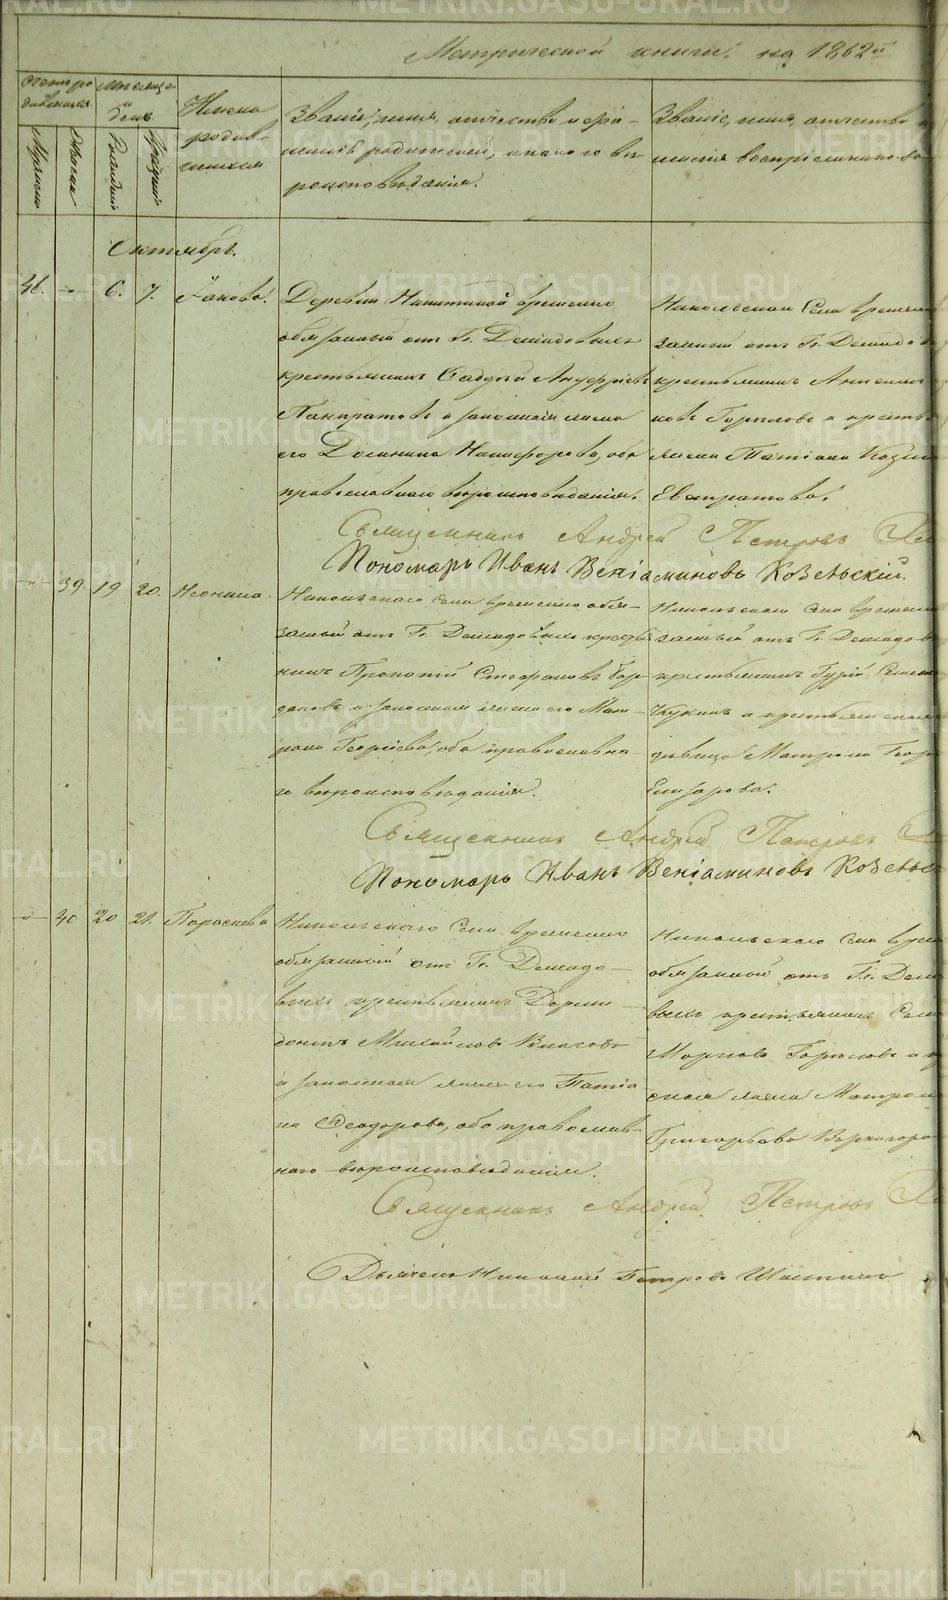 Метрической книги на 1862й
Счетъ ро
дившихся
Мѣсяцъ
и
день
Имена
родив-
шихся
Званіе, имя, отчество и фами-
лія родителей, и какого вѣ-
роисповѣданія.
Званіе, имя, отчество и
фамилія воспріемниковъ
Мужеска
Женска
Рожденія
Крещенія
Октябрь.
46. -"- 6. 7. Іаковъ.
Деревни Никитиной временно
обязанный отъ Гг. Демидовыхъ
крестьянинъ Фаддей Ануфріевъ
Панкратовъ и законная жена
его Домнина Никифорова, оба
православнаго вѣроисповѣданія.
Никольскаго Села времен
занный отъ Гг. Демидо
крестьянинъ Анисим
новъ Горкловъ и кресть
жена Татіана Козм
Евстратова.
Священникъ Андрей Петровъ
Пономарь Иванъ Веніаминовъ Козельскій.
-"- 39 19 20. Неонила.
Никольскаго Села временно обя-
занный отъ Гг. Демидовыхъ кресть
нинъ Прокопій Стефановъ Бор
дановъ и законная жена его Мат-
рона Георгіева, оба православна-
го вѣроисповѣданія.
Никольскаго Села времен
занный отъ Гг. Демидов
крестьянинъ Гурій Семен
Чукинъ и крестьянская
дѣвица Матрона Геор
Елизарова.
Священникъ Андрей Петровъ
Пономарь Иванъ Веніаминовъ Козельс
-"- 40 20 21. Параскева
Никольскаго Села временно
обязанной отъ Гг. Демидо-
выхъ крестьянинъ Дорми-
донтъ Михайловъ Власовъ
и законная жена его Татіа
на Феодорова, оба православ-
наго вѣроисповѣданія.
Никольскаго Села врем
обязанной отъ Гг. Дем
выхъ крестьянинъ Сем
Марковъ Горкловъ и кр
ская жена Матрон
Григорьева Варнигоро
Священникъ Андрей Петровъ
Дьячекъ Николай Петровъ Шастинъ
METRIKI.GASO-URAL.RU